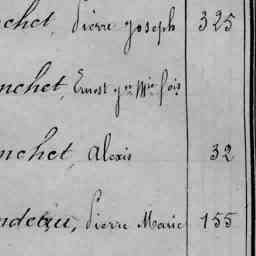 nchet, Pierre Joseph 325
nchet, Ernest gn Mie fois
nchet, Alexis 32
ndeau, Pierre Marie 155